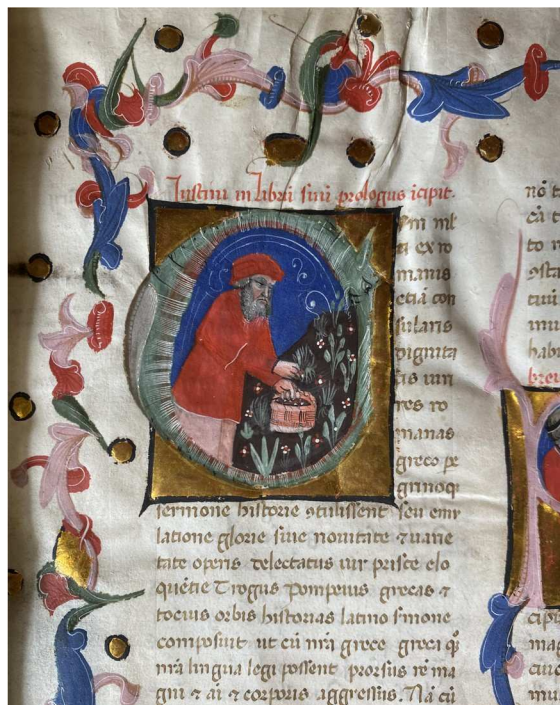 Iustini in libri sui prologus icipit.
m ml
ti ex ro
manis
etiā con
sularis
dignita
tis uiri
res ro
manas
greco pe
grinoq
sermone historie ɔtulissent seu emu
latione glorie siue nouitate ⁊ uarie
tate operis delectatus uir prisce elo
quētie Trogus Pompeius grecas ⁊
tocius orbis historias latino sᵉmone
composuit ut cū nr̄a grece greci qꝫ
nr̄a lingua legi possent prorsus rē ma
gni ⁊ ai ⁊ corporis aggressus. Nā cū
nō
cū
to
tui
mus
hab
breu
cipi
mag
cui
mu